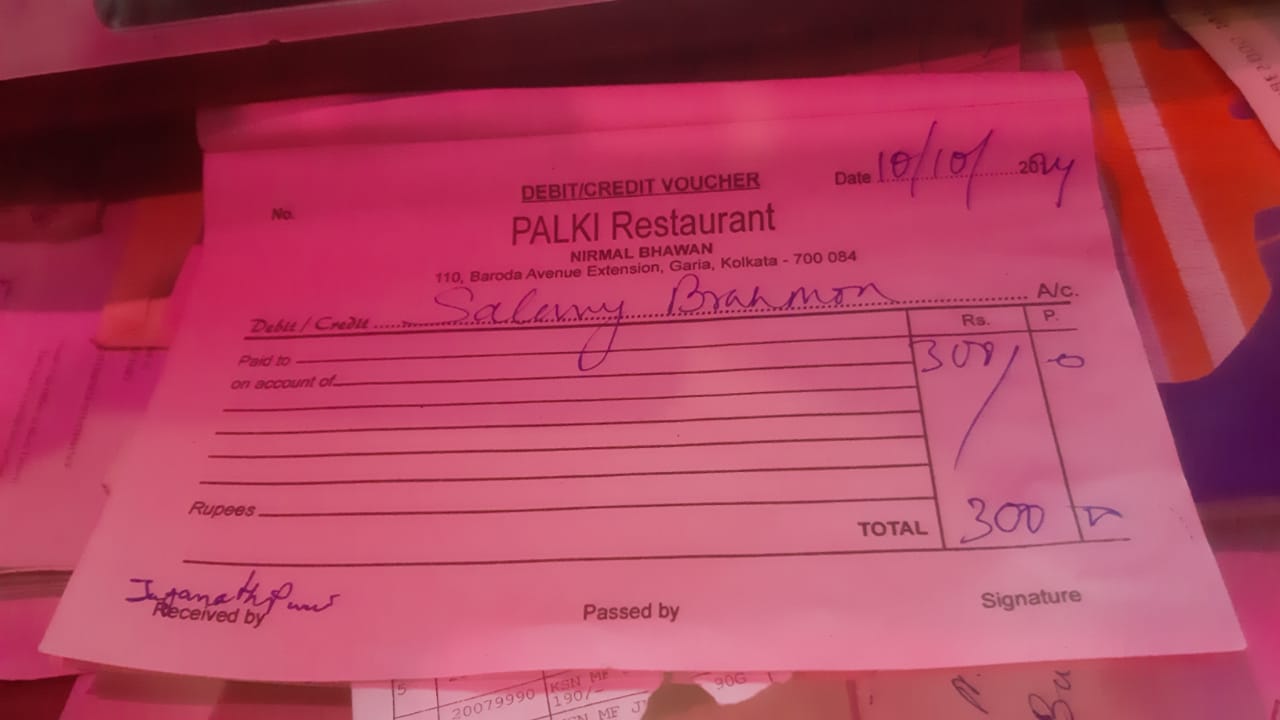 DEBIT/CREDIT VOUCHER
Date 10/10/ 2024
No.
PALKI Restaurant
NIRMAL BHAWAN
110, Baroda Avenue Extension, Garia, Kolkata - 700 084
Debit / Credit Salary Brahmon A/c.
Rs. P.
Paid to 300/
on account of
Rupees
TOTAL 300
Received by
Passed by
Signature
5
20079990 KSN MF
190/-
90G
KSN MF
Ba